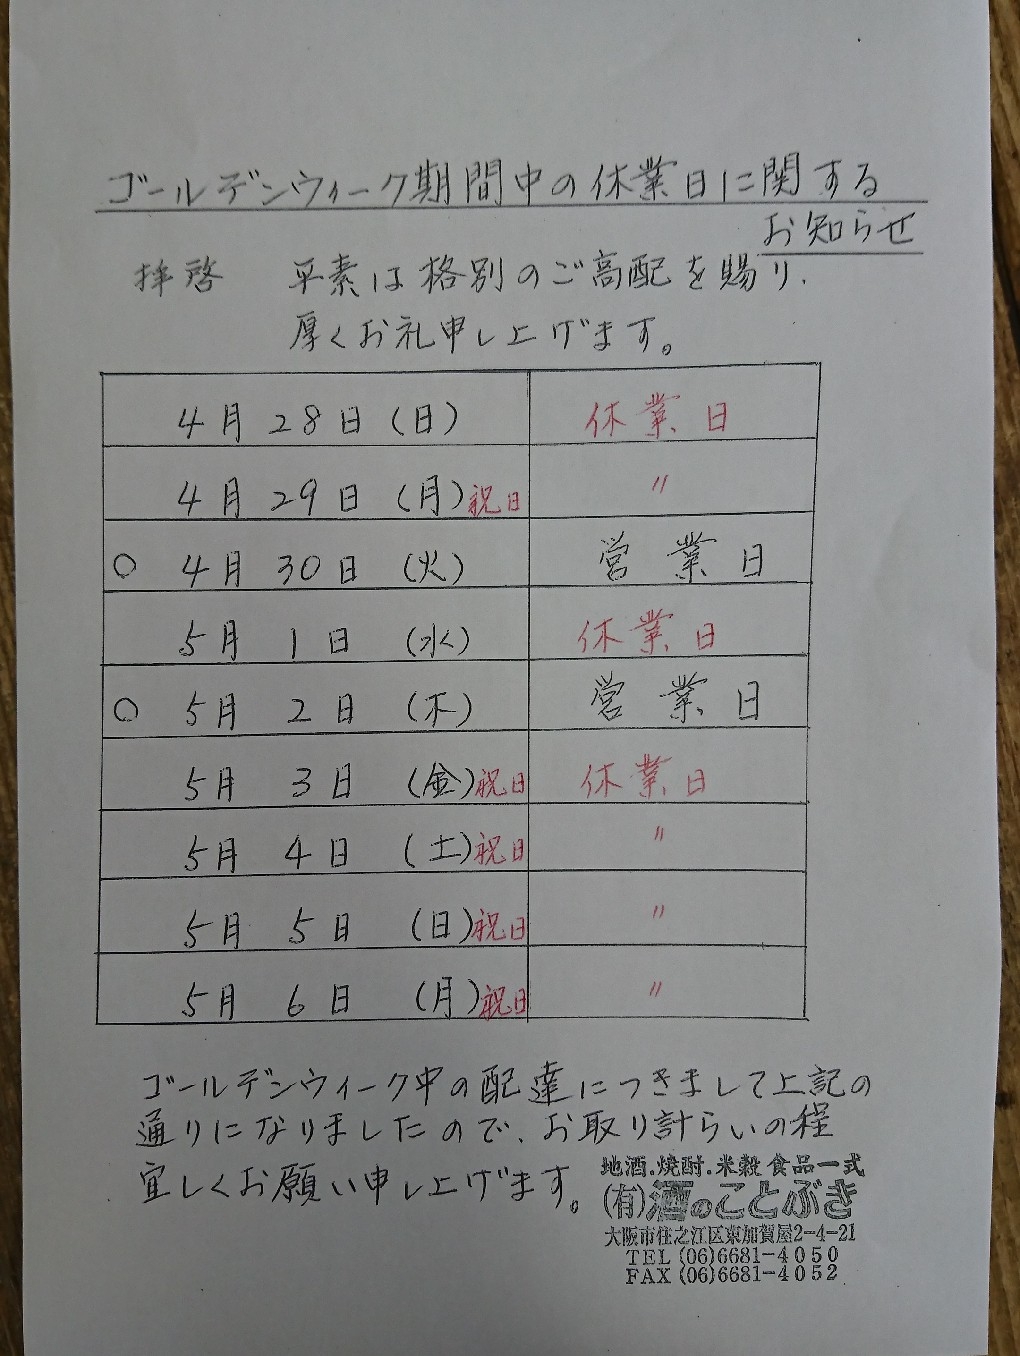 ゴールデンウィーク期間中の休業日に関する
お知らせ
拝啓 平素は格別のご高配を賜り、
厚くお礼申し上げます。
4月28日(日) 休業日
4月29日(月)祝日 〃
○ 4月30日(火) 営業日
5月1日(水) 休業日
○ 5月2日(木) 営業日
5月3日(金)祝日 休業日
5月4日(土)祝日 〃
5月5日(日)祝日 〃
5月6日(月)祝日 〃
ゴールデンウィーク中の配達につきまして上記の
通りになりましたので、お取り計らいの程
宜しくお願い申し上げます。
地酒.焼酎.米穀食品一式
(有)酒のことぶき
大阪市住之江区東加賀屋2-4-21
TEL (06)6681-4050
FAX (06)6681-4052